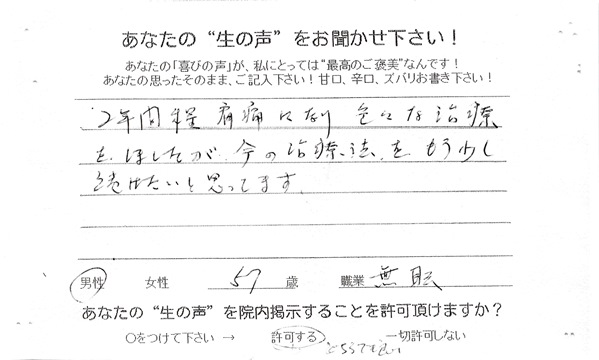 あなたの“生の声”をお聞かせ下さい！
あなたの「喜びの声」が、私にとっては“最高のご褒美”なんです！
あなたの思ったそのまま、ご記入下さい！甘口、辛口、ズバリお書き下さい！
2年間程 肩痛になり 色々な治療
をしましたが、今の治療法をもう少し
続けたいと思ってます。
男性 女性 57 歳 職業 無職
あなたの“生の声”を院内掲示することを許可頂けますか？
○をつけて下さい → 許可する 一切許可しない
どちらでもいい